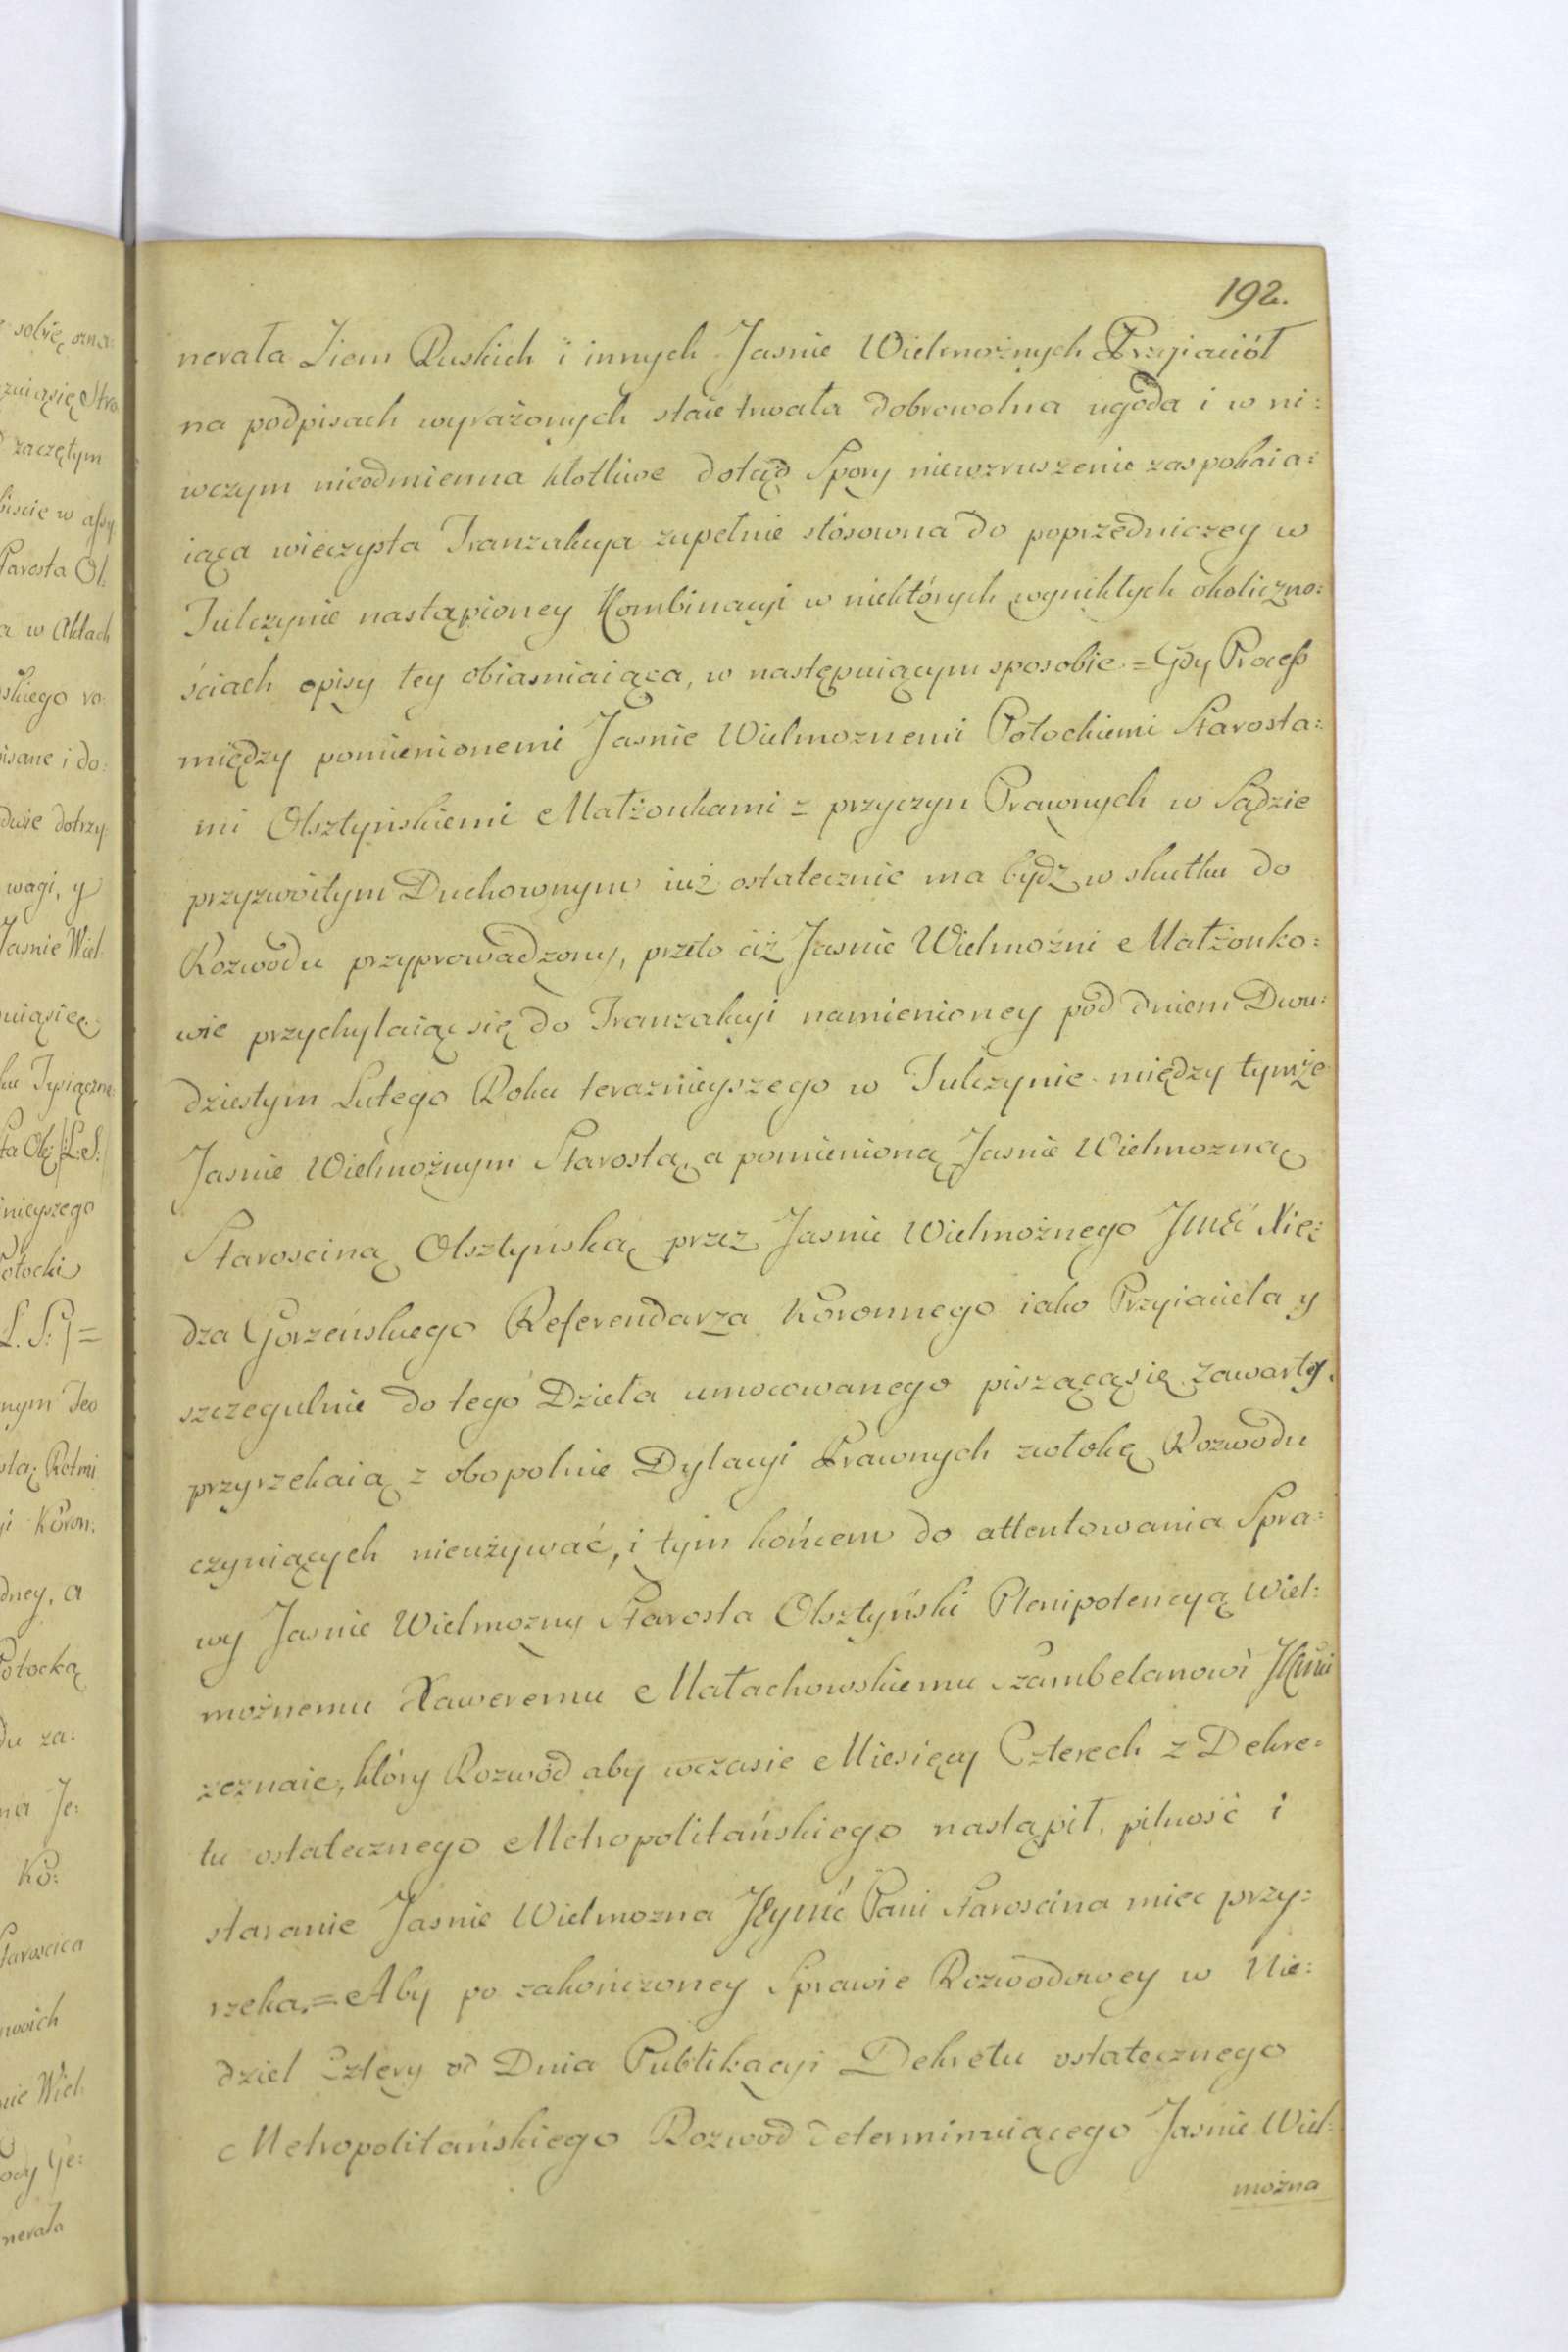 192.
nerała Ziem Ruskich i innych Jasnie Wielmożnych Przyiaciół
na podpisach wyrażonych staie trwała dobrowolna ugoda i w ni:
wczym nieodmienna kłotliwe dotąd Spory niewzruszenie zaspokaia:
iąca wieczysta Tranzakcya zupełnie stósowna do poprzedniczey w
Tulczynie nastąpioney Kombinacyi w niektórych wynikłych okoliczno:
ściach opisy tey obiasniaiąca, w następuiącym sposobie = Gdy Process
między pomienionemi Jasnie Wielmoznemi Potockiemi Starosta:
mi Olsztyńskiemi Małżonkami z przyczyn Prawnych w Sądzie
przyzwoitym Duchownym iuż ostatecznie ma bydź w skutku do
Rozwodu przyprowadzony, przeto ciż Jasnie Wielmożni Małżonko:
wie przychylaiąc się do Tranzakcyi namienioney pod dniem Dwu:
dziestym Lutego Roku teraznieyszego w Tulczynie między tymże
Jasnie Wielmożnym Starostą, a pomienioną Jasnie Wielmozną
Staroscina Olsztyńską przez Jasnie Wielmożnego Jmć Xię:
dza Gorzeńskiego Referendarza Koronnego iako Przyiaciela y
szczegulnie do tego Dzieła umocowanego piszącą się zawartey.
przyrzekaią z obopolnie Dylacyi Prawnych zwłokę Rozwodu
czyniących nieużywać, i tym końcem do attentowania Spra:
wy Jasnie Wielmozny Starosta Olsztyński Plenipotencyą Wiel:
możnemu Xaweremu Małachowskiemu Szambelanowi JKMci
zeznaie, który Rozwód aby wczasie Miesięcy Czterech z Dekre:
tu ostatecznego Metropolitańskiego nastąpił, pilność i
staranie Jasnie Wielmozna Jeymć Pani Staroscina miec przy:
rzeka. = Aby po zakończoney Sprawie Rozwodowey w Nie:
dziel Cztery od Dnia Publikacyi Dekretu ostatecznego
Metropolitańskiego Rozwod determinuiącego Jasnie Wiel:
można
sobie, ozna:
zuiąsię Stro
zaczętym
w Aktach
skiego ro
isane i do:
dwie dotrzy:
wagi, y
Jasnie Wiel.
uiąsię
nieyszego
otocki
L. S.) =
nym Teo
i Koron.
dney, a
Potocką
du za:
na Je:
Ko:
taroscica
woich
nie Wiel
Ge:
nerała